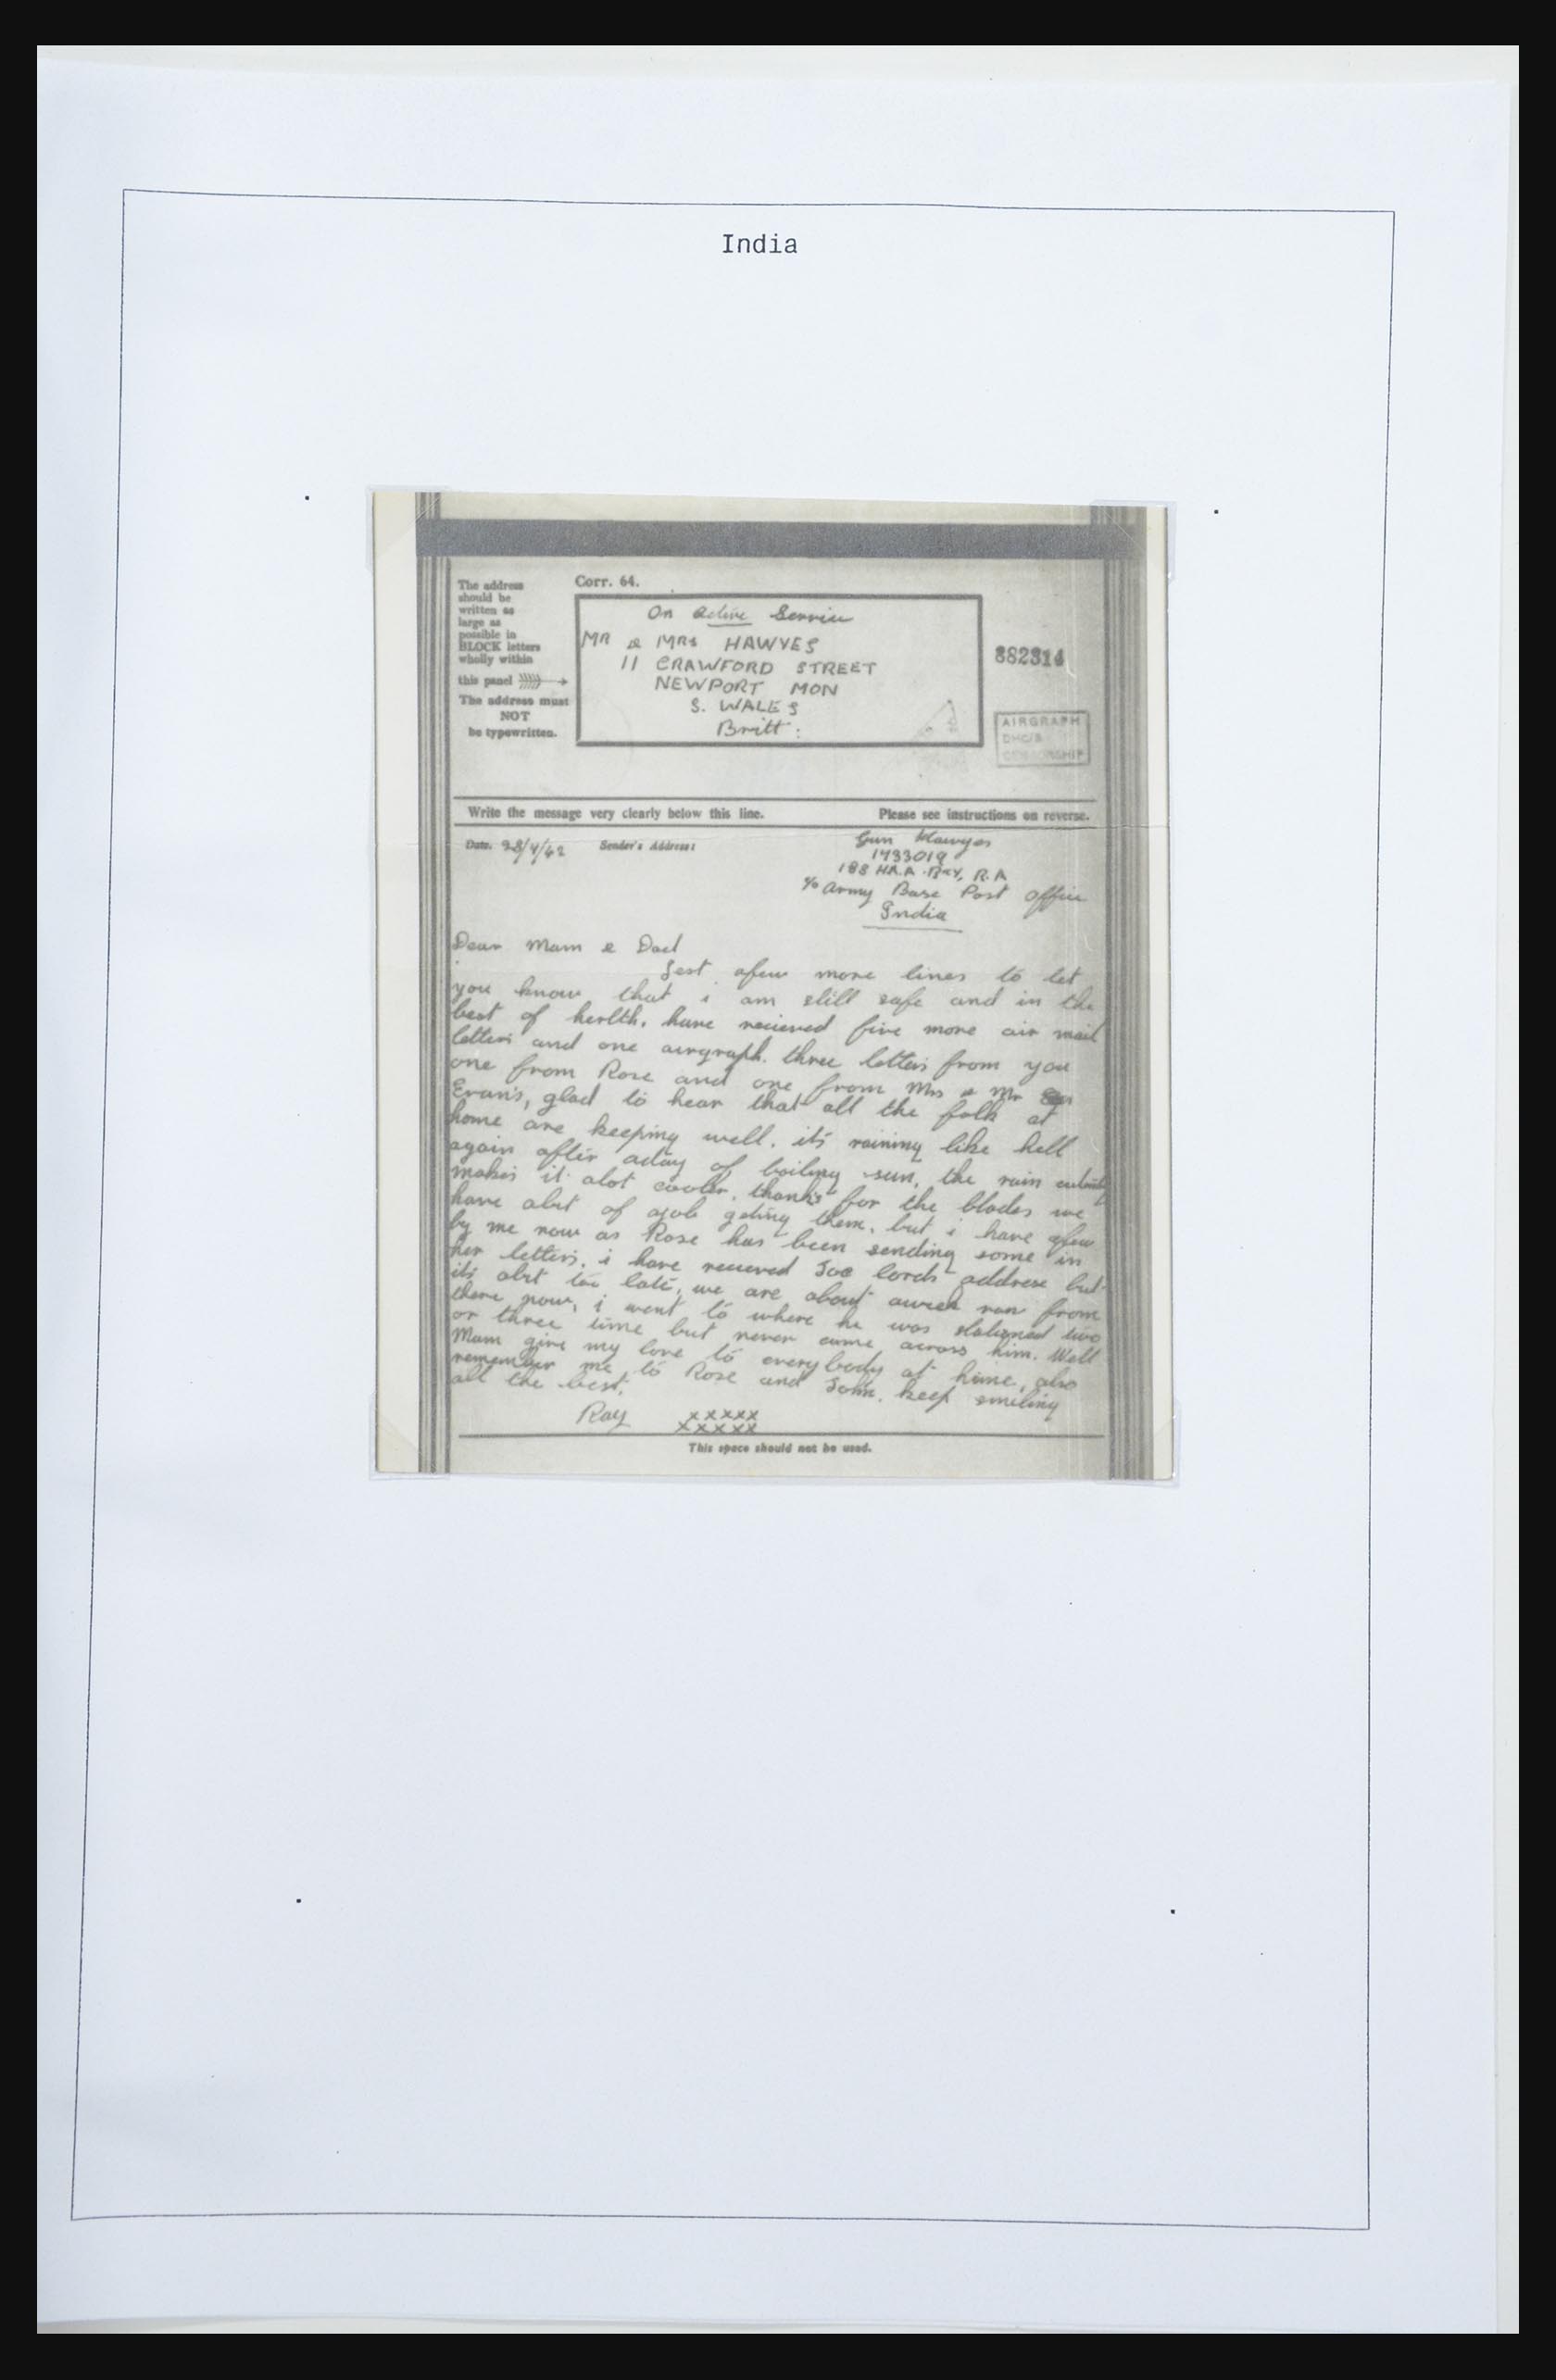 India
The address
should be
written as
large as
possible in
BLOCK letters
wholly within
this panel
The address must
NOT
be typewritten.
Corr. 64.
On Active Service
MR & MRS HAWYES
11 CRAWFORD STREET
NEWPORT MON
S. WALES
Britt:
882314
AIRGRAPH
CENSORSHIP
Write the message very clearly below this line. Please see instructions on reverse.
Date. 28/4/42 Sender's Address:
Gun Hawyes
1733019
188 H.A.A. Bty, R.A
c/o Army Base Post Office
India
Dear Mam & Dad
Jest afew more lines to let
you know that i am still safe and in the
best of herlth. have recieved five more air mail
letters and one airgraph. three letters from you
one from Rose and one from Mrs & Mr
Evan's, glad to hear that all the folk at
home are keeping well. its raining like hell
again after aday of boiling sun, the rain
makes it alot cooler. thanks for the blades we
have abit of ajob geting them, but i have afew
by me now as Rose has been sending some in
her letters. i have recieved Joe lords address but
its abit to late, we are about aweek run from
there now, i went to where he was stationed two
or three time but never came across him. Well
Mam give my love to everybody at hime, also
remember me to Rose and John. keep smiling
all the best.
Ray xxxxx
xxxxx
This space should not be used.